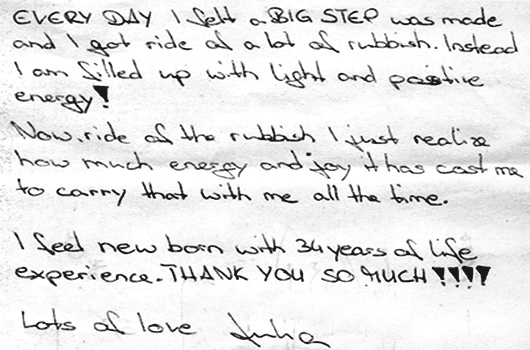 EVERY DAY I felt a BIG STEP was made
and I got ride of a lot of rubbish. Instead
I am filled up with light and positive
energy!
Now, ride of the rubbish I just realize
how much energy and joy it has cost me
to carry that with me all the time.
I feel new born with 34 years of life
experience. THANK YOU SO MUCH!!!!
Lots of love Julia